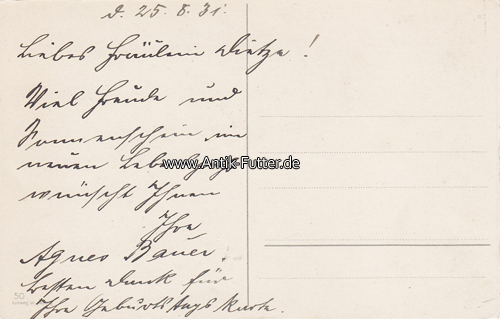 d. 25.8.31.
Liebes Fräulein Dietze!
Viel Freude und
Sonnenschein im
neuen Lebensjahr
www.Antik-Futter.de
wünscht Ihnen
Ihre
Agnes Bauer.
Besten Dank für
Ihre Geburtstagskarte.
50